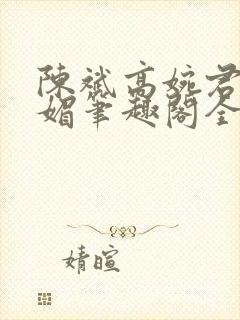 陳斌高婉君
媚筆趣閣全
婧暄